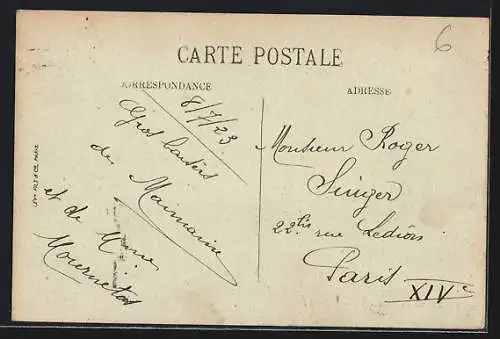 6
CARTE POSTALE
CORRESPONDANCE
ADRESSE
8/7/23
Gros baisers
de Maimaine
et de Mme
Monsieur Roger
Singer
22 bis rue Ledion
Paris XIVe